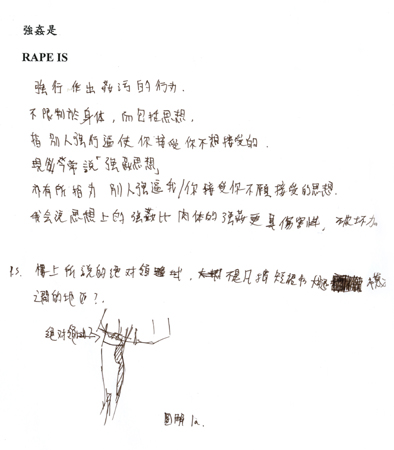 強姦是
RAPE IS
強行作出姦污的行為.
不限制於身体，而包括思想.
指別人強行逼使你接受你不想接受的.
現今常說「強姦思想」
亦有所指为 別人强逼我/你接受你不願接受的思想.
我会说思想上的强姦比肉体的强姦更具傷害性，破坏力
P.S. 網上所说的绝对領域，不是只指短裙和
之間的地区？.
绝对領域
圖解 1a.